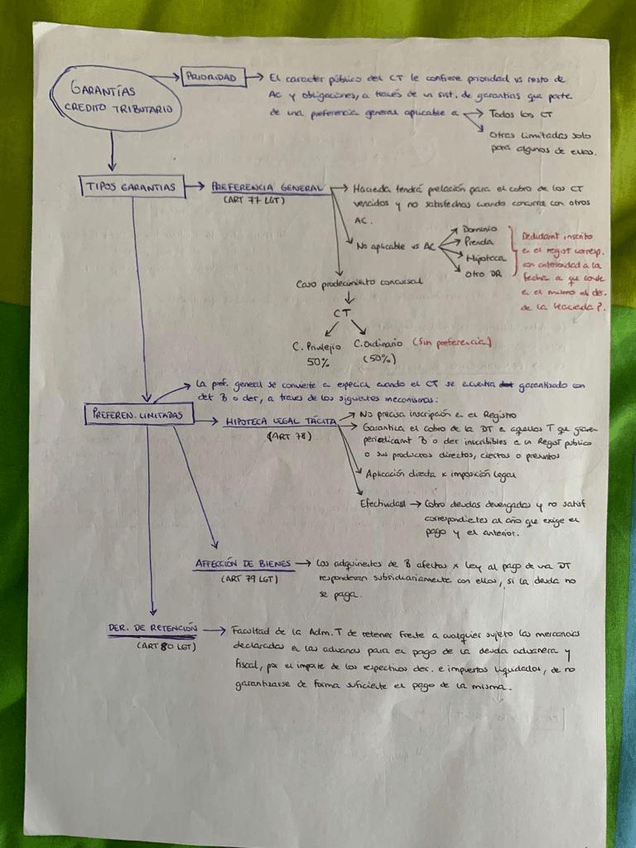 GARANTÍAS
CREDITO TRIBUTARIO
PRIORIDAD
El caracter público del CT le confiere prioridad vs resto de
AC y obligaciones, a través de un sist. de garantías que parte
de una preferencia general aplicable a
Todos los CT
Otras limitadas solo
para algunos de ellos.
TIPOS GARANTIAS
PREFERENCIA GENERAL
(ART 77 LGT)
Hacienda tendrá prelación para el cobro de los CT
vencidos y no satisfechos cuando concurra con otros
AC.
No aplicable vs AC
Dominio
Prenda
Hipoteca
Otro DR
Debidamt inscrito
en el regist corresp.
con anterioridad a la
fecha a que conste
en el mismo el der.
de la Hacienda P.
Caso procedimiento concursal
CT
C. Privilegio
50%
C. Ordinario (Sin preferencia)
(50%)
La pref. general se convierte a especial cuando el CT se encuentra garantizado con
det B o der, a través de los siguientes mecanismos:
PREFEREN. LIMITADAS
HIPOTECA LEGAL TÁCITA
(ART 78)
No precisa inscripción en el Registro
Garantiza el cobro de la DT en aquellos T que graven
periodicamt B o der inscribibles en un Regist público
o sus productos directos, ciertos o presuntos
Aplicación directa x imposición legal
Efectividad
Cobro deudas devengadas y no satisf
correspondientes al año que exige el
pago y el anterior.
AFFECCIÓN DE BIENES
(ART 79 LGT)
Los adquirentes de B afectos x Ley al pago de una DT
responderan subsidiariamente con ellos, si la deuda no
se paga.
DER. DE RETENCIÓN
(ART 80 LGT)
Facultad de la Adm. T de retener frente a cualquier sujeto las mercancías
declaradas en las aduanas para el pago de la deuda aduanera y
fiscal, por el importe de los respectivos der. e impuestos liquidados, de no
garantizarse de forma suficiente el pago de la misma.